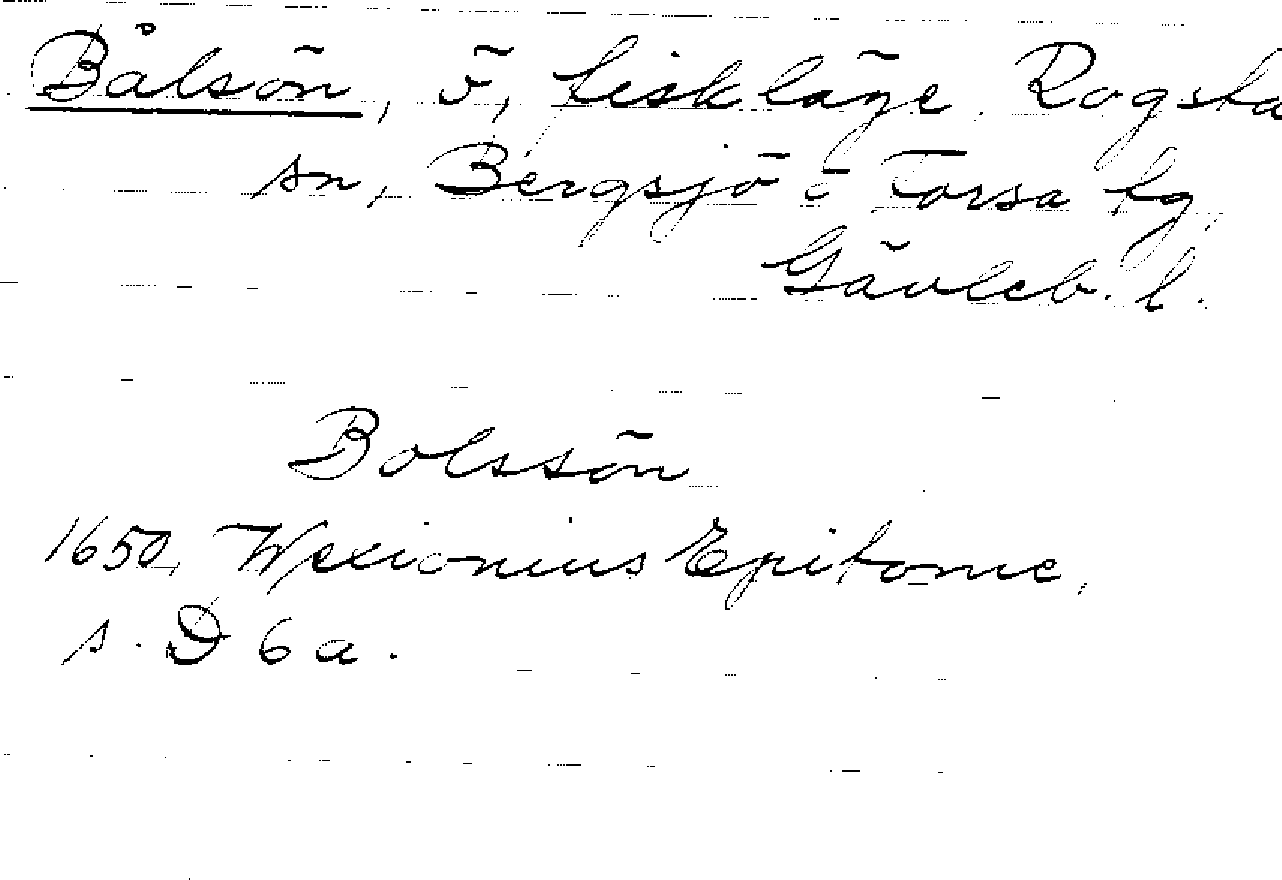 Bålsön, ö, fiskläge, Rogsta
sn, Bergsjö o Forsa hg,
Gävleb. l.
Bolssön
1650, Wexionius Epitome,
s. D 6 a.